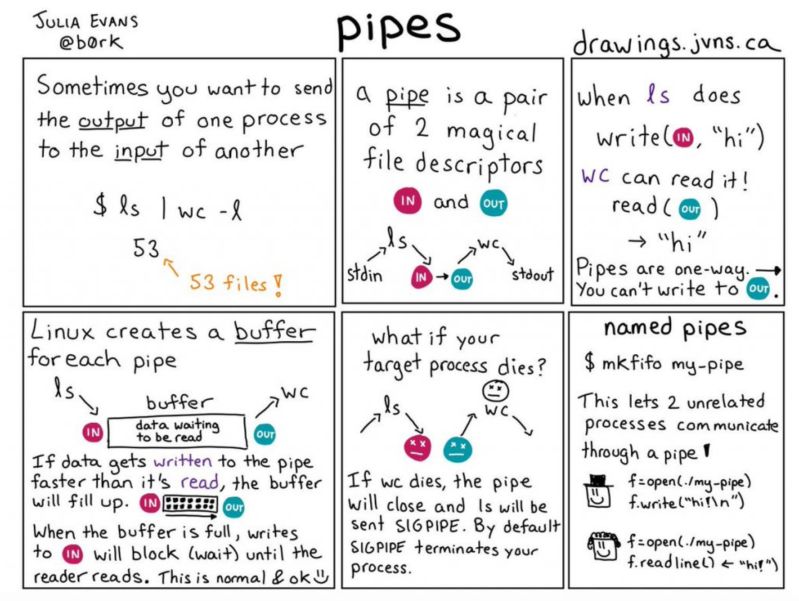 JULIA EVANS
@b0rk
pipes
drawings.jvns.ca
Sometimes you want to send
the output of one process
to the input of another
$ ls | wc -l
53
53 files!
a pipe is a pair
of 2 magical
file descriptors
IN and OUT
ls
wc
stdin
IN → OUT
stdout
when ls does
write(IN, "hi")
wc can read it!
read(OUT)
→ "hi"
Pipes are one-way. →
You can't write to OUT.
Linux creates a buffer
for each pipe
ls
buffer
wc
IN
data waiting
to be read
OUT
If data gets written to the pipe
faster than it's read, the buffer
will fill up. IN OUT
When the buffer is full, writes
to IN will block (wait) until the
reader reads. This is normal & ok
what if your
target process dies?
ls
wc
If wc dies, the pipe
will close and ls will be
sent SIGPIPE. By default
SIGPIPE terminates your
process.
named pipes
$ mkfifo my-pipe
This lets 2 unrelated
processes communicate
through a pipe!
f=open(./my-pipe)
f.write("hi!\n")
f=open(./my-pipe)
f.readline() ← "hi!"